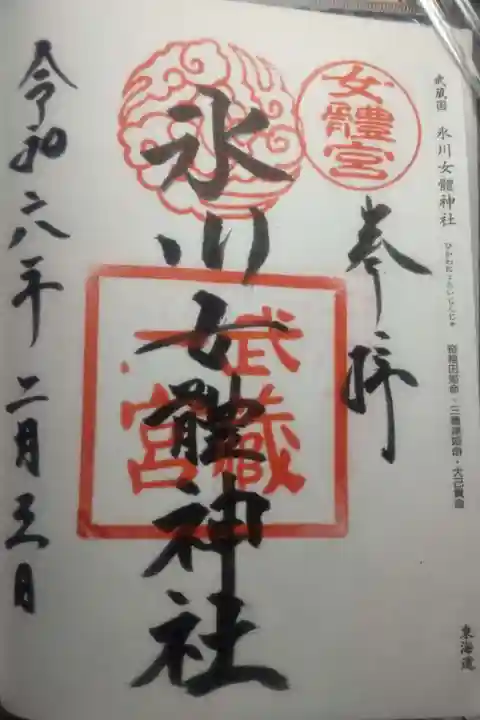 武蔵国 氷川女體神社
ひかわにょたいじんじゃ
奇稲田姫命・三穂津姫命・大己貴命
東海道
女體宮
奉拝
氷川女體神社
武蔵
一宮
令和六年二月日